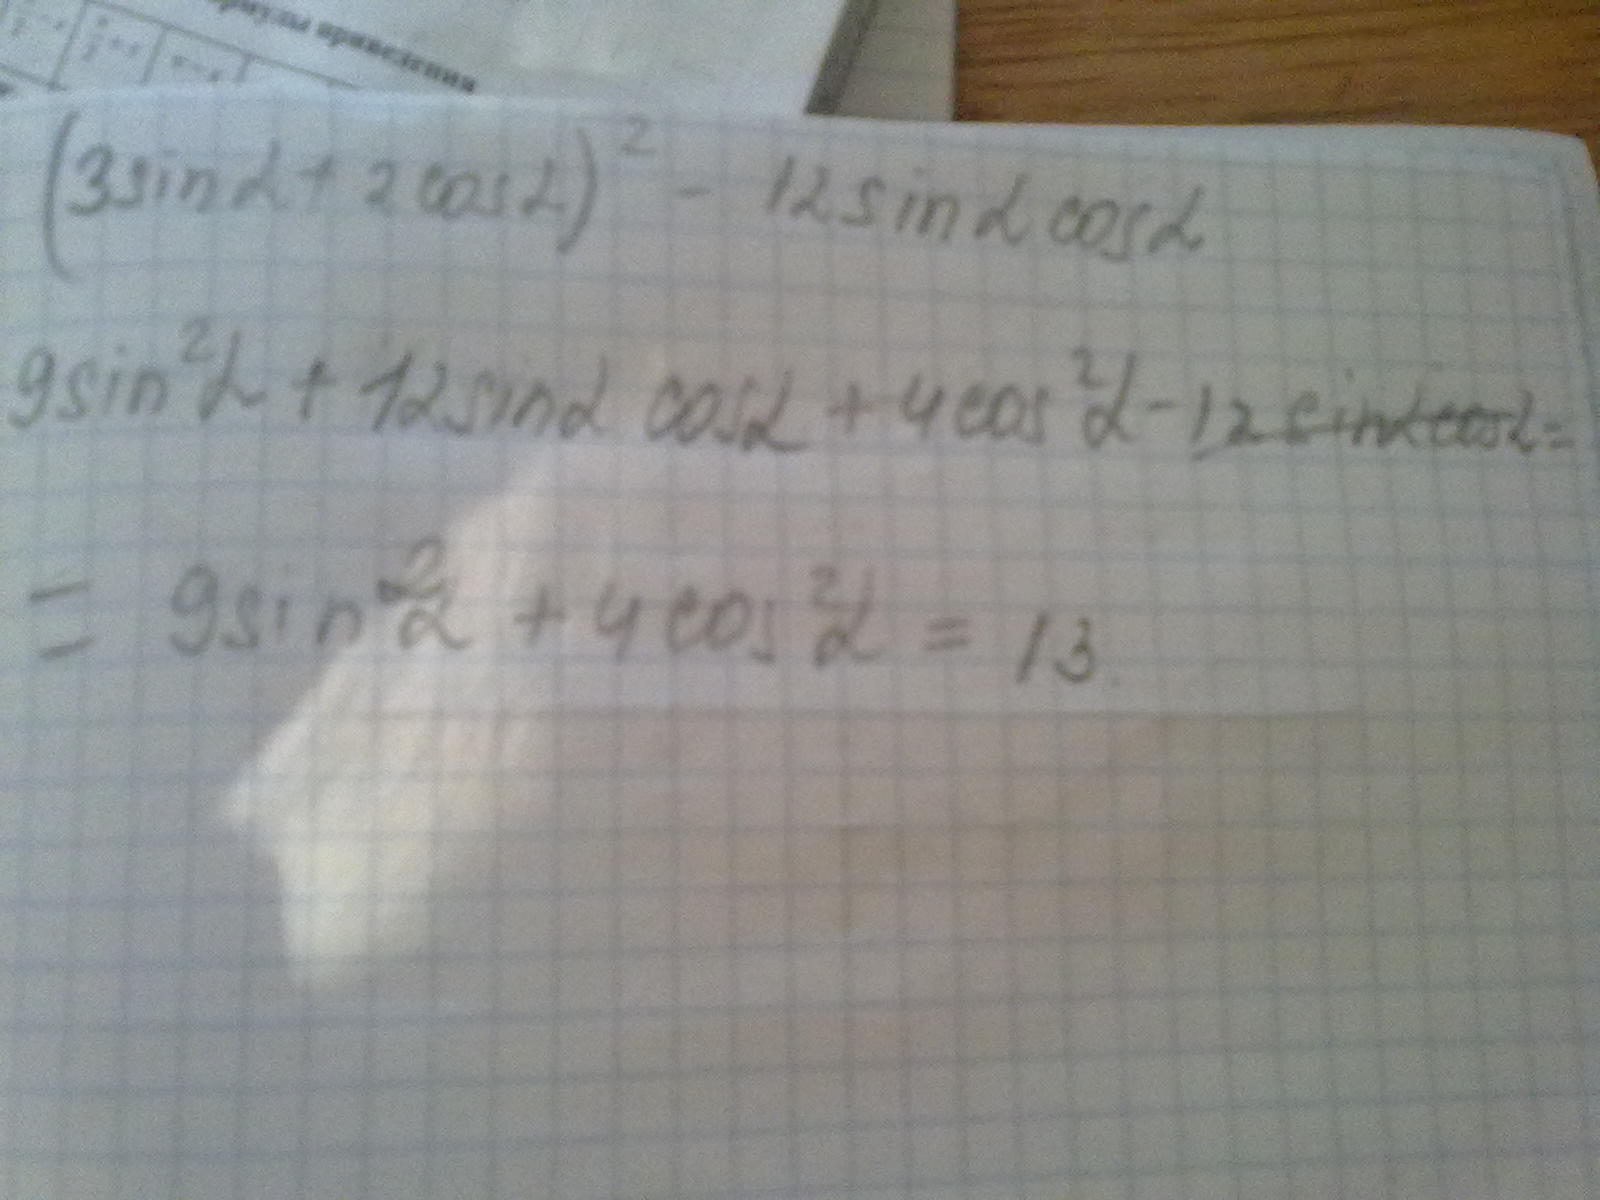 рмулы приведения
(3sinα + 2cosα)² - 12sinα cosα
9sin²α + 12sinα cosα + 4cos²α - 12sinαcosα =
= 9sin²α + 4cos²α = 13.